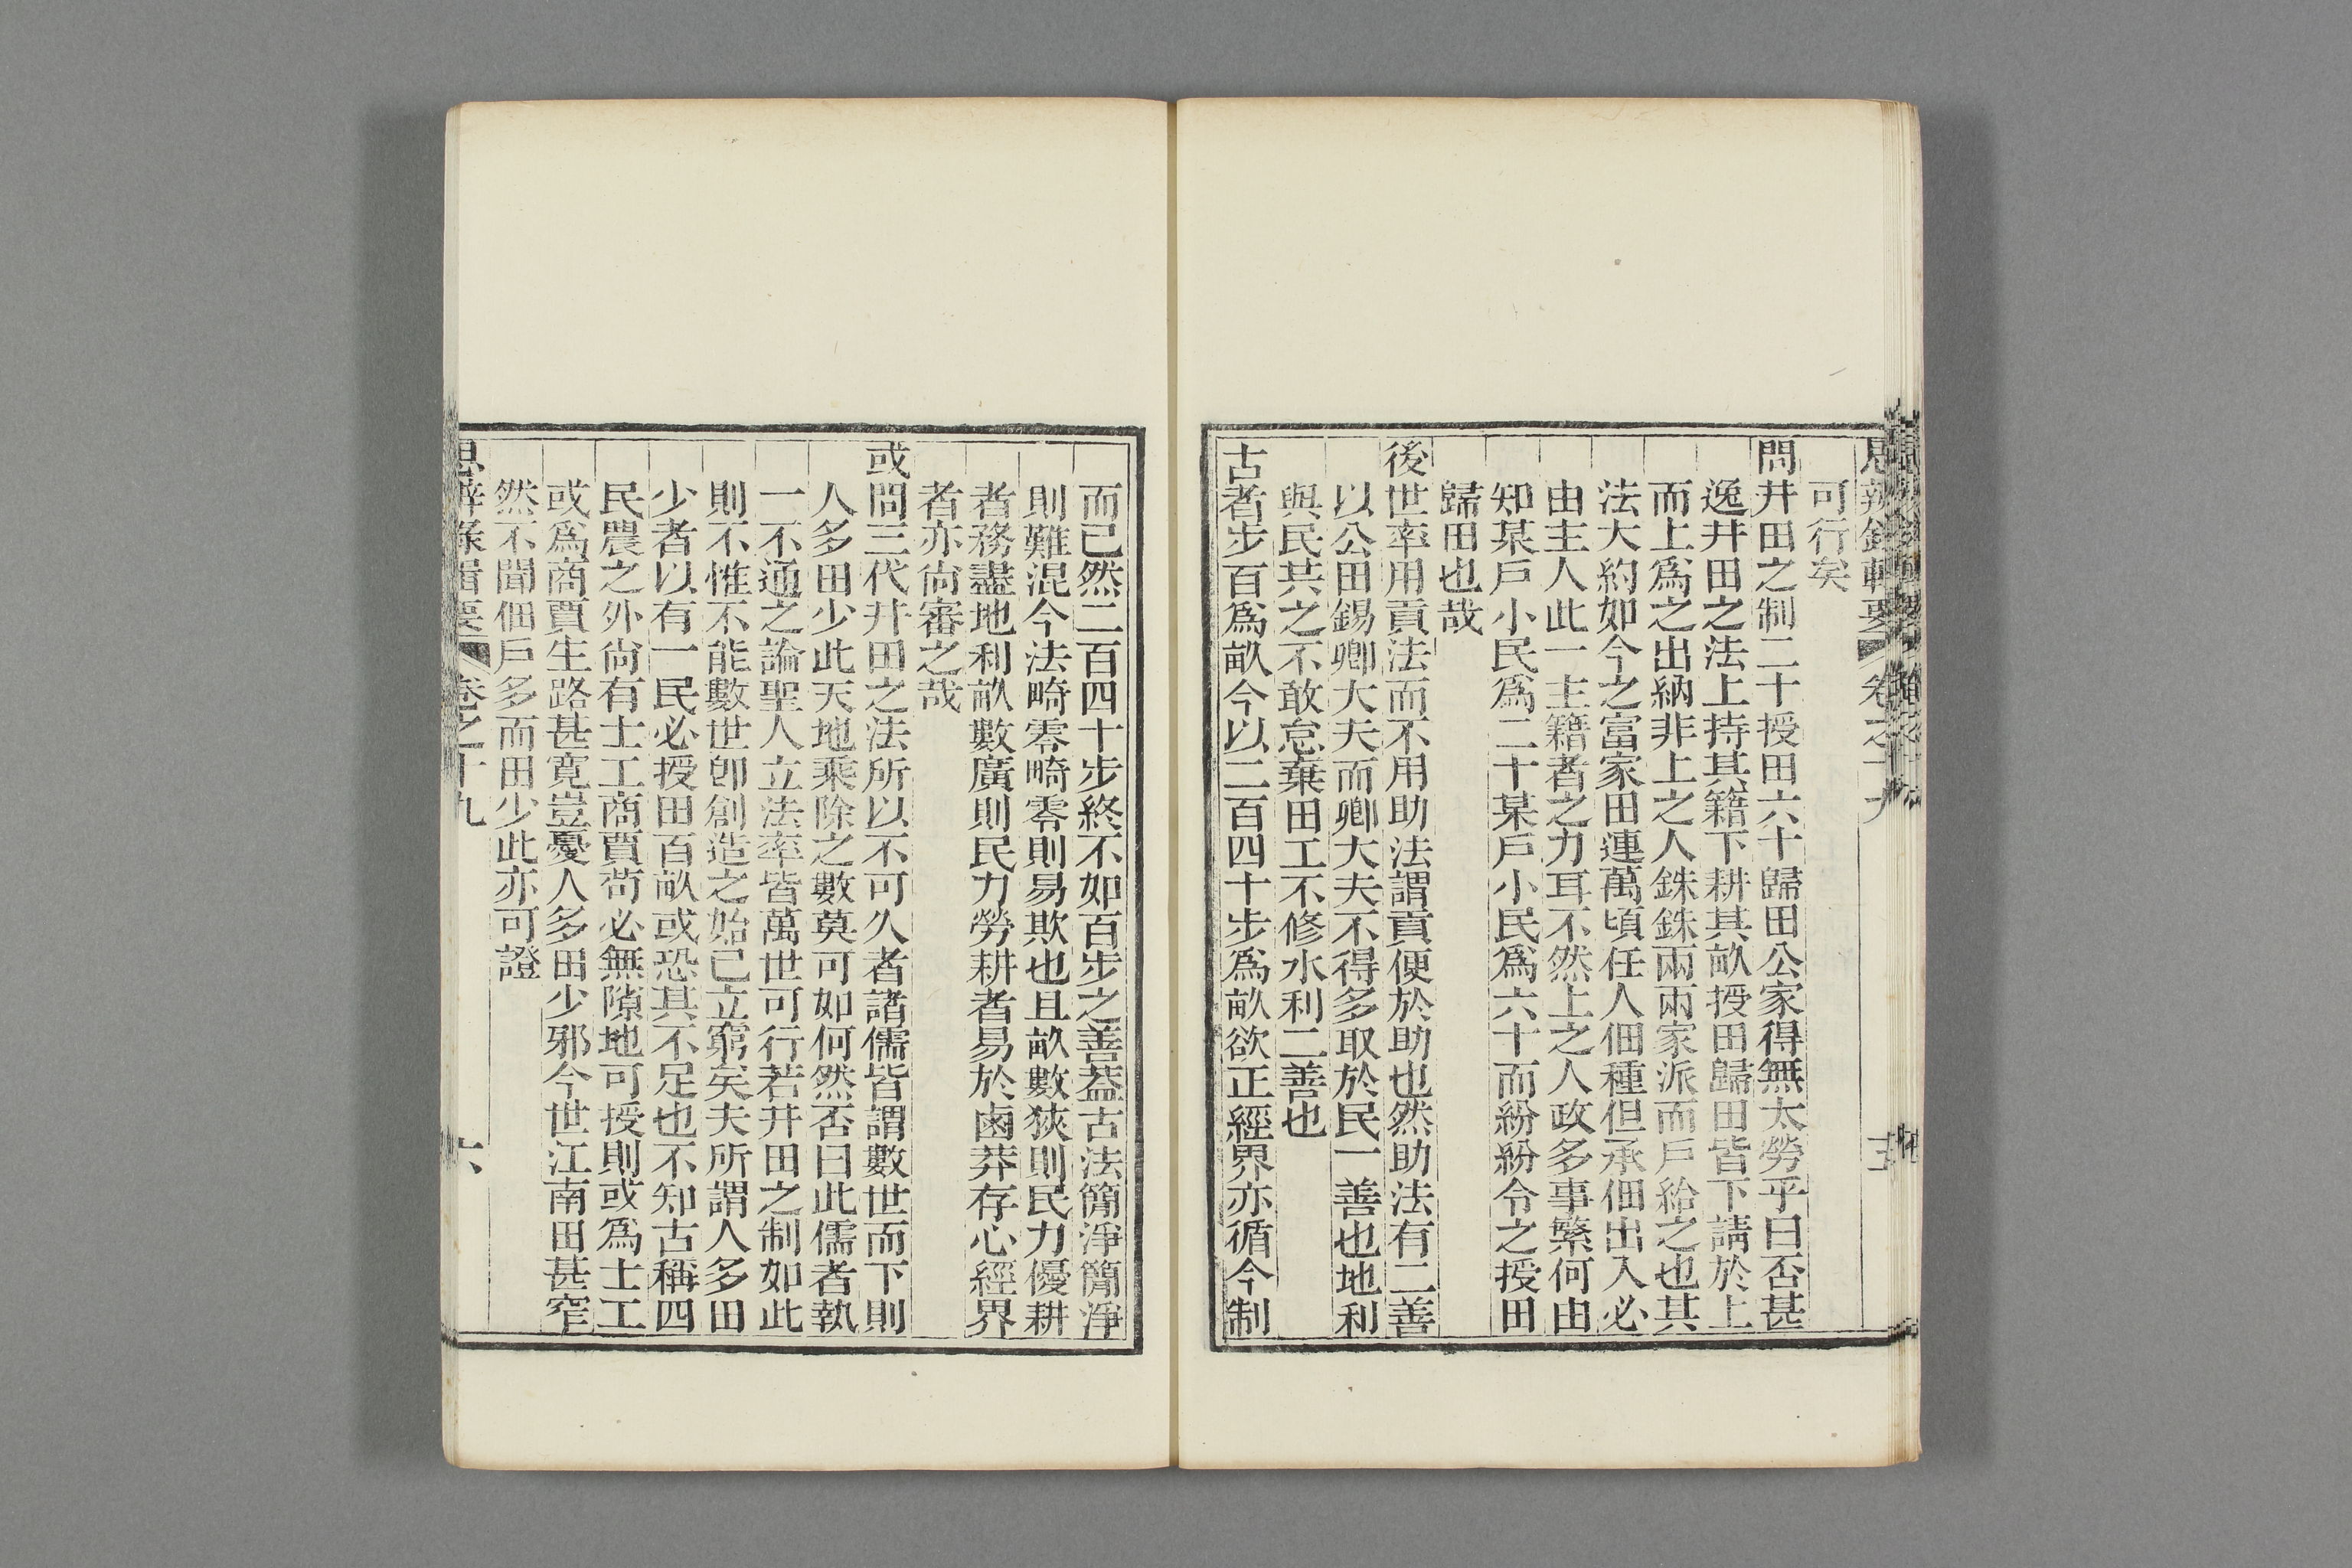 思辨錄輯要 卷之十九
可行矣
問井田之制二十授田六十歸田公家得無太勞乎曰否甚
逸井田之法上持其籍下耕其畝授田歸田皆下請於上
而上爲之出納非上之人銖銖兩兩家派而戶給之也其
法大約如今之富家田連萬頃任人佃種但承佃出入必
由主人此一主籍者之力耳不然上之人政多事繁何由
知某戶小民爲二十某戶小民爲六十而紛紛令之授田
歸田也哉
後世率用貢法而不用助法謂貢便於助也然助法有二善
以公田錫卿大夫而卿大夫不得多取於民一善也地利
與民共之不敢怠棄田工不修水利二善也
古者步百爲畝今以二百四十步爲畝欲正經界亦循今制
而已然二百四十步終不如百步之善葢古法簡淨簡淨
則難混今法畸零畸零則易欺也且畝數狹則民力優耕
者務盡地利畝數廣則民力勞耕者易於鹵莽存心經界
者亦尙審之哉
或問三代井田之法所以不可久者諸儒皆謂數世而下則
人多田少此天地乘除之數莫可如何然否曰此儒者執
一不通之論聖人立法率皆萬世可行若井田之制如此
則不惟不能數世卽創造之始已立窮矣夫所謂人多田
少者以有一民必授田百畝或恐其不足也不知古稱四
民農之外尙有士工商賈苟必無隙地可授則或爲士工
或爲商賈生路甚寬豈憂人多田少邪今世江南田甚窄
然不聞佃戶多而田少此亦可證
思辨錄輯要 卷之十九 六